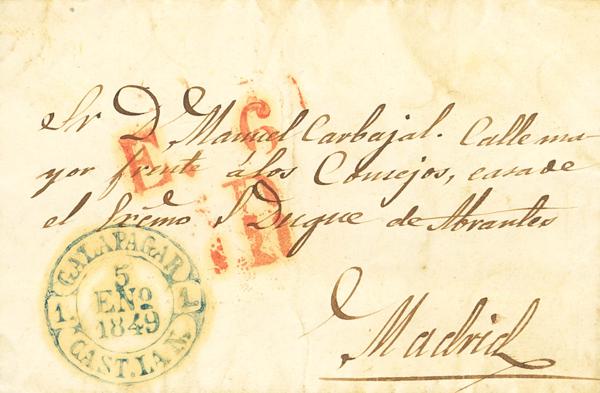 Sr D. Manuel Carbajal. Calle ma-
yor frente á los Consejos, casa de
el Sr Duque de Abrantes
Madrid
E. 6
GALAPAGAR
1. 1.
5
ENº
1849
CAST. LA N.